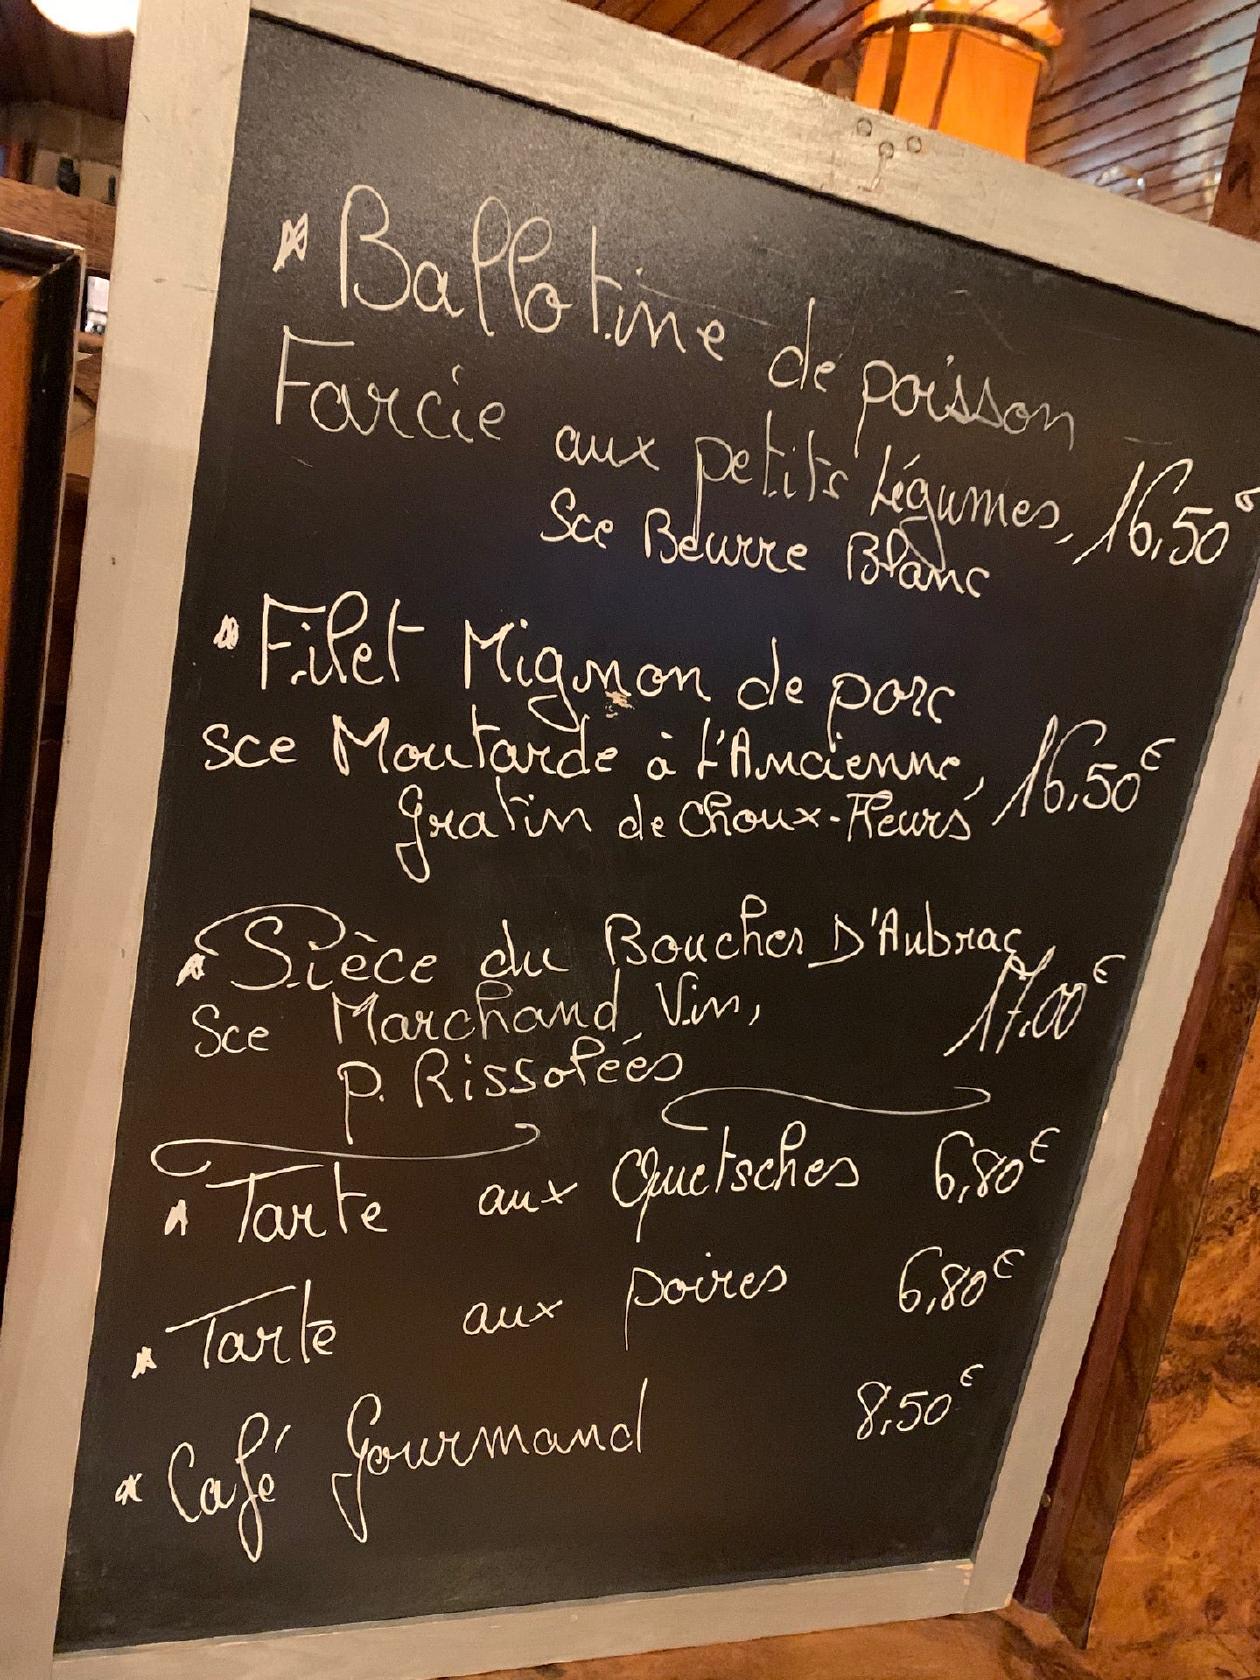 * Ballotine de poisson
Farcie aux petits Légumes, 16,50€
Sce Beurre Blanc
* Filet Mignon de porc
Sce Moutarde à L'Ancienne, 16,50€
gratin de Choux-Fleurs
* Pièce du Boucher D'Aubrac,
Sce Marchand Vin, 17,00€
p. Rissolées
* Tarte aux Quetsches 6,80€
* Tarte aux poires 6,80€
* Café Gourmand 8,50€